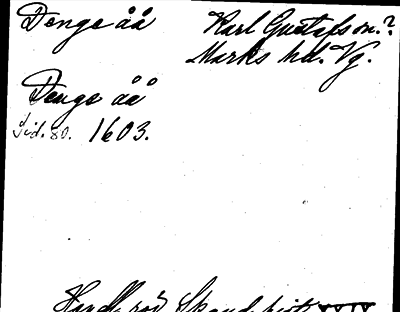 Denge åå
Karl Gustafson.?
Marks hd. Vg.
Denge åå
Sid. 80. 1603.
Handl. rör Skand. hist. XXIX